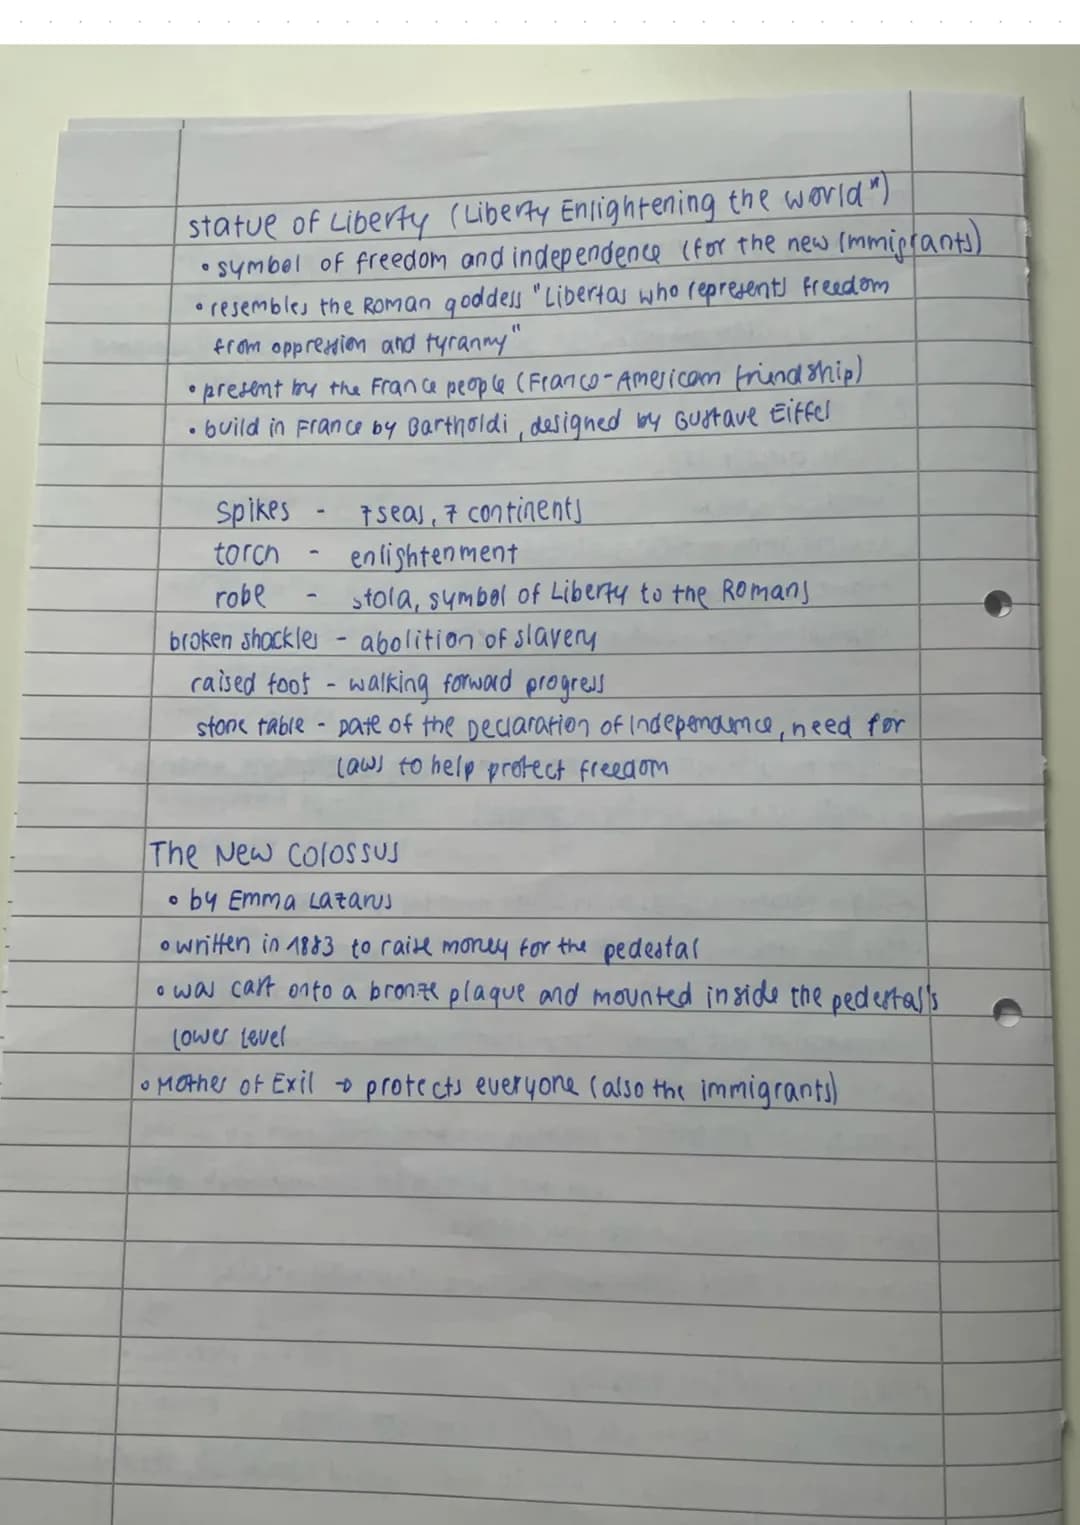 statue of Liberty (Liberty Enlightening the world")
• symbol of freedom and independence (for the new immigrants)
• resembles the Roman goddess "Libertas who represents freedom
from oppression and tyranny"
• present by the France people (Franco-American friendship)
• build in France by Bartholdi, designed by Gustave Eiffel
spikes - 7 seas, 7 continents
torch - enlightenment
robe - stola, symbol of Liberty to the Romans
broken shackles - abolition of slavery
raised foot - walking forward progress
stone table - Date of the Declaration of Independence, need for
laws to help protect freedom
The New Colossus
• by Emma Lazarus
• written in 1883 to raise money for the pedestal
• was cast onto a bronze plaque and mounted inside the pedestal's
lower level
• Mother of Exil → protects everyone (also the immigrants)